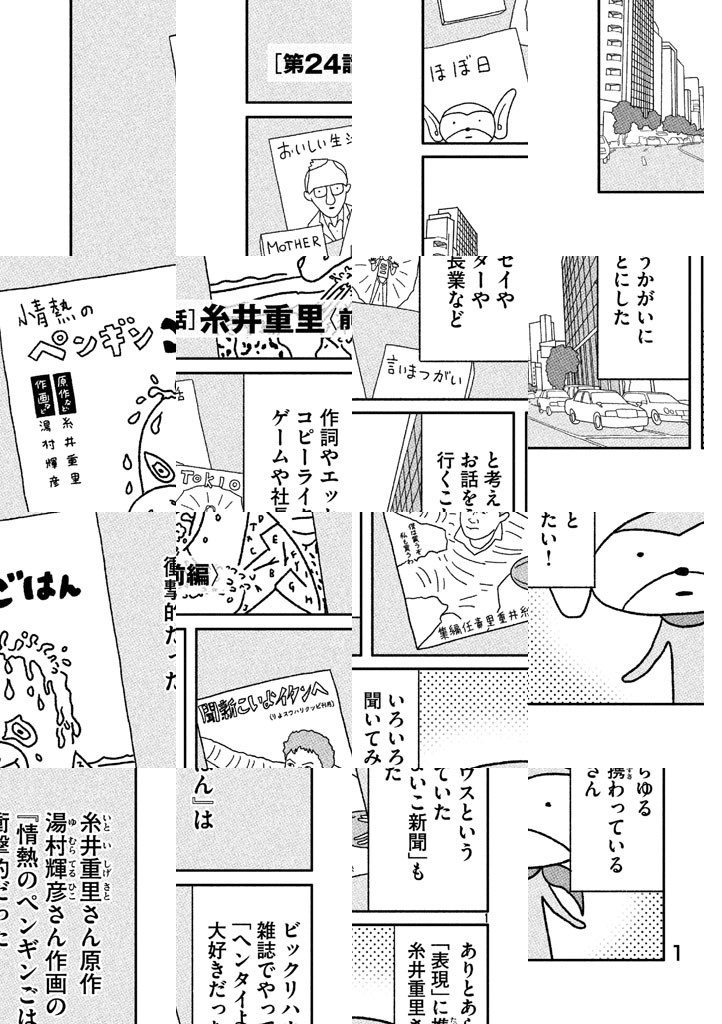 糸井重里さん原作
湯村輝彦さん作画の
『情熱のペンギンごはん』は
衝撃的だった
情熱の
ペンギンごはん
原作など
糸井重里
作画など
湯村輝彦
[第24話]糸井重里〈前編〉
ビックリハウスという
雑誌でやっていた
「ヘンタイよいこ新聞」も
大好きだった
聞新こいよイタンヘ
集編任責里重井糸
作詞やエッセイや
コピーライターや
ゲームや社長業など
おいしい生活
MOTHER
TOKIO
ほぼ日
言いまつがい
ありとあらゆる
「表現」に携わっている
糸井重里さん
いろいろ
聞いてみたい!
と考え
お話をうかがいに
行くことにした
1